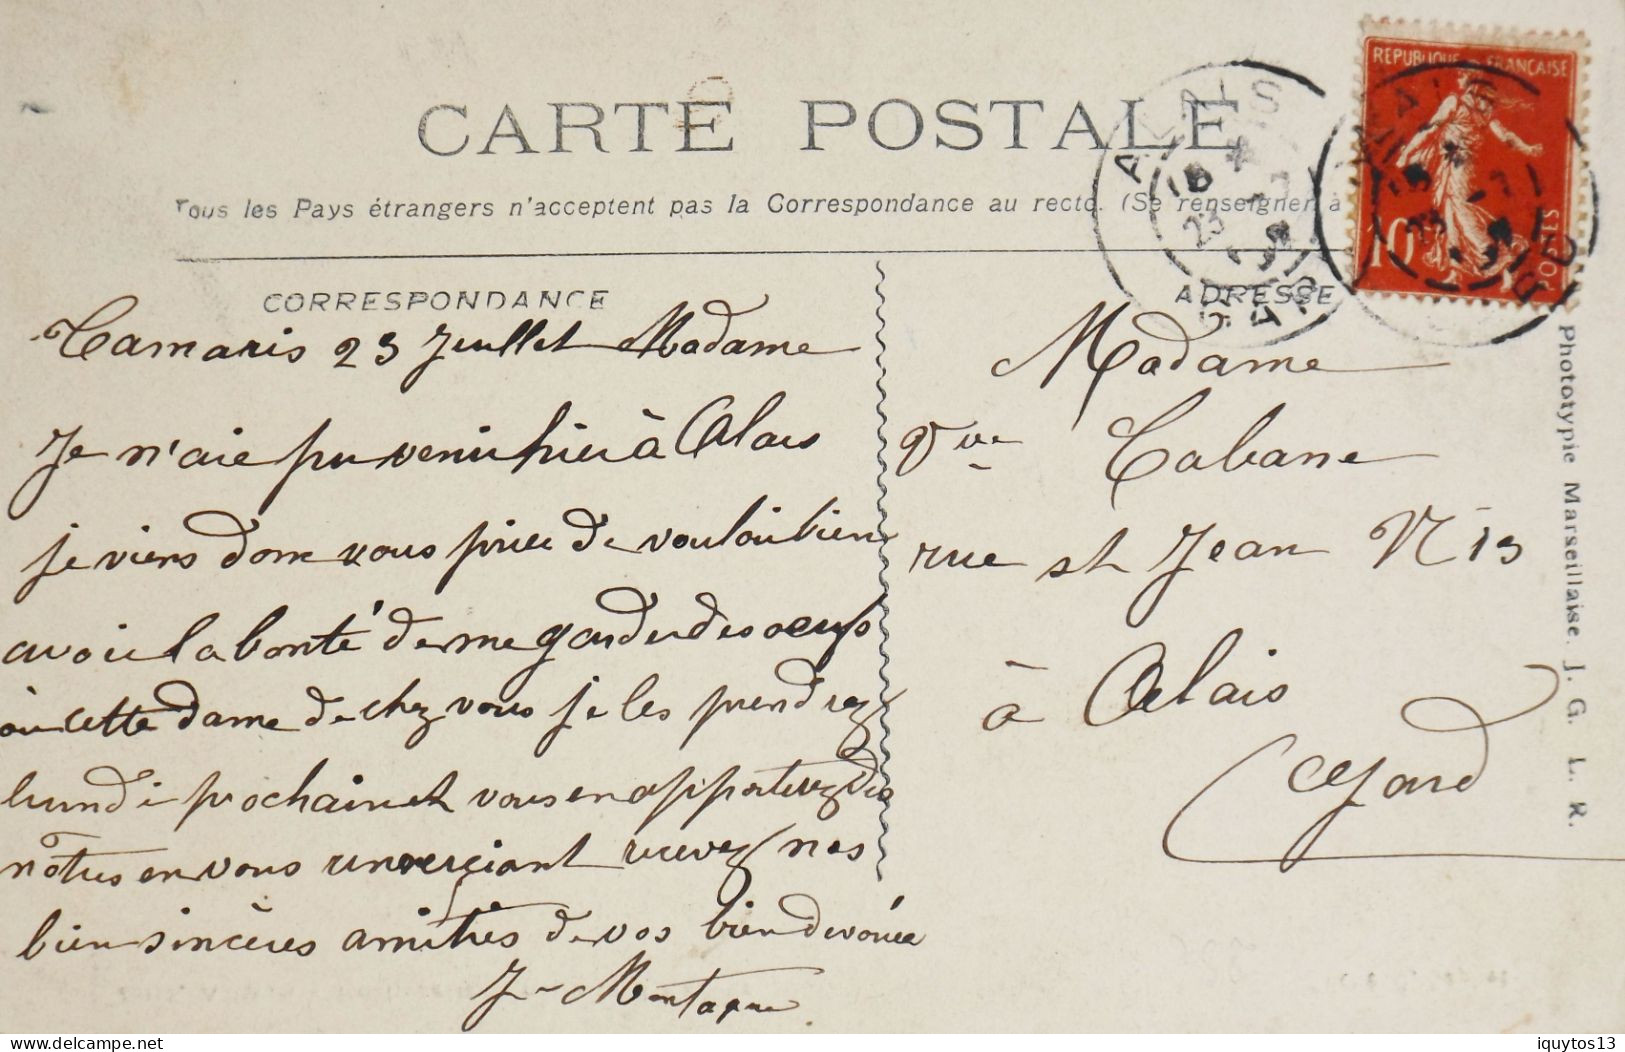 CARTE POSTALE
Tous les Pays étrangers n'acceptent pas la Correspondance au recto. (Se renseigner à
CORRESPONDANCE
Tamaris 23 Juillet Madame
Je n'aie pu venir hier à Alais
je viens donc vous priée de vouloir bien
avoir la bonté de me garder des oeufs
où cette dame de chez vous je les prendrez
lundi prochain et vous en apporterez des
nôtres en vous remerçiant recevez nos
bien sincères amitiés de vos bien devouée
J- Montagne
ADRESSE
Madame
Vve Cabane
rue st Jean N 13
à Alais
Gard
REPUBLIQUE FRANÇAISE
10
POSTES
ALAIS
GARD
Phototypie Marseillaise. J. G. L. R.
delcampe.net
iquytos13